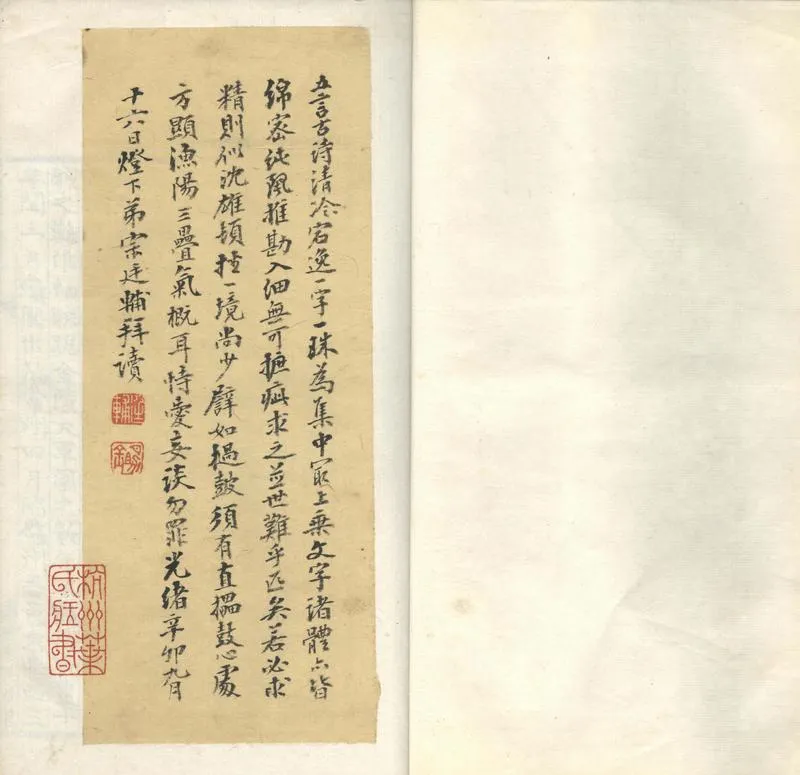 五言古詩清泠宕逸一字一珠為集中冣上乗文字諸體亦皆
綿密純推勘入細無可摭疵求之並世難乎匹矣若必求
精則似沈雄頓挫一境尚少譬如撾鼓須有直搵鼓心處
方顯漁陽三疊氣概耳恃愛妄談勿罪光緒辛卯九月
十六日燈下弟宗廷輔拜讀
廷輔
杭州葉
氏藏書